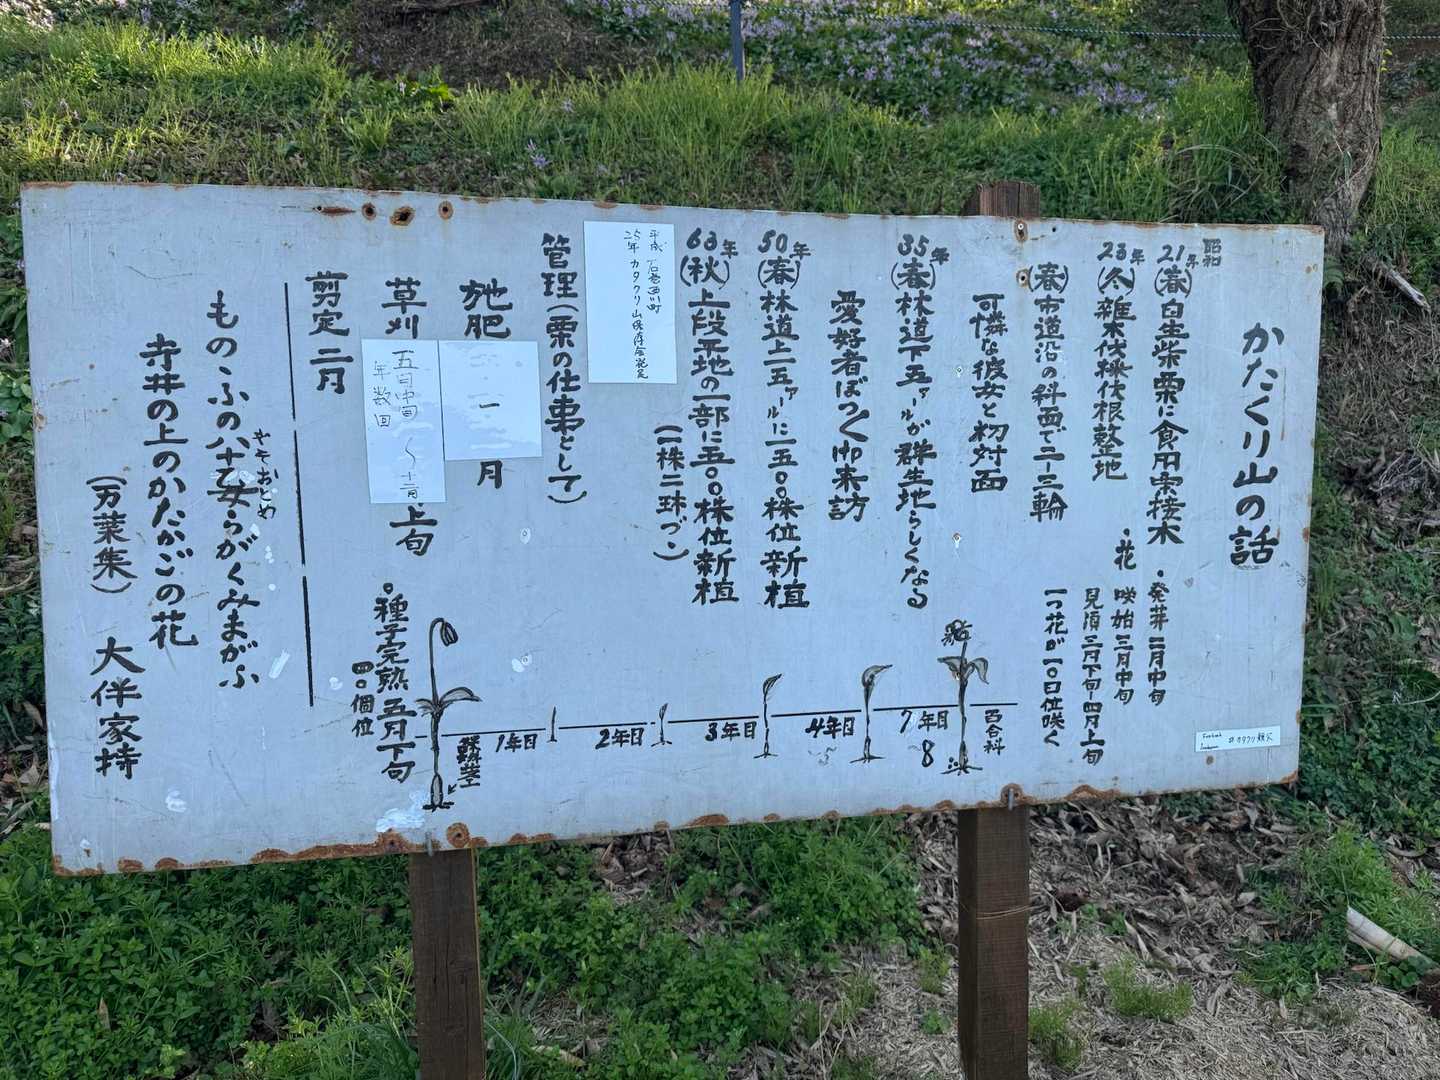 かたくり山の話
昭和
21年(春)自生柴栗に食用栗接木
23年(冬)雑木伐採伐根整地
(春)市道沿の斜面で二-三輪
可憐な彼女と初対面
35年(春)林道下五アールが群生地らしくなる
愛好者ぼつ〱御来訪
50年(春)林道上二五アールに二五〇〇株位新植
63年(秋)上段平地の一部に五〇〇株位新植
(一株二球づゝ)
平成 石巻西川町
二五年 カタクリ山保存会発足
管理(栗の仕事として)
施肥 一月
草刈 五月中旬〜十二月上旬
年数回
剪定 二月
・発芽 二月中旬
・花 咲始 三月中旬
見頃 三月下旬-四月上旬
一つ花が一〇日位咲く
百合科
7年目
8
4年目
5
3年目
2年目
1年目
鱗茎
・種子完熟 五月下旬
四〇個位
やそおとめ
ものゝふの八十乙女らがくみまがふ
寺井の上のかたかごの花
(万葉集) 大伴家持
Facebook
#カタクリ親父